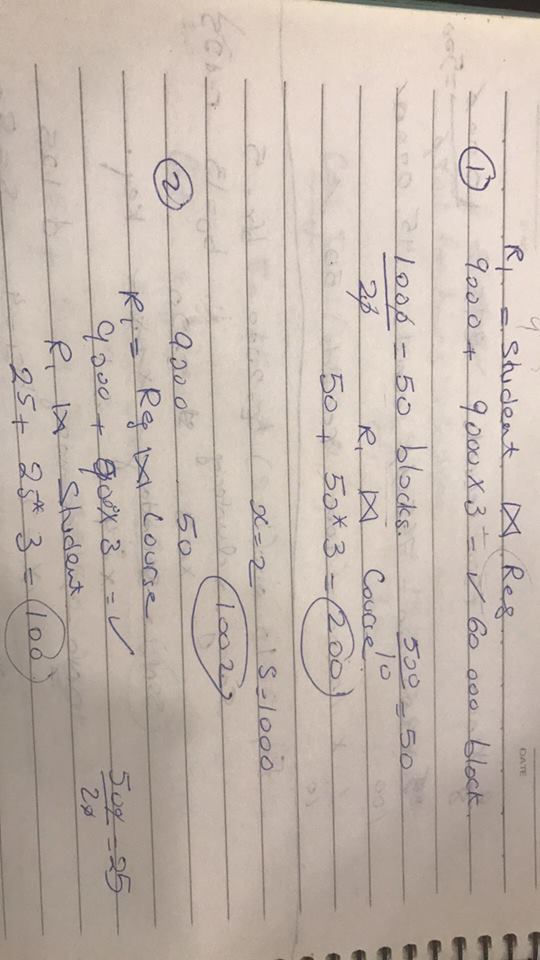 DATE
R₁ = Student ⋈ Reg
① 9000 + 9000 X 3 = ✓ 60 000 block.
1000/20 = 50 blocks. 500/10 = 50
R₁ ⋈ Course.
50 + 50* 3 = 200
x = 2 S = 1000
1002
② 9000 50
R₁ = Reg ⋈ Course
9000 + 900 X 3 = ✓ 500/20 = 25
R₁ ⋈ Student
25 + 25* 3 = 100